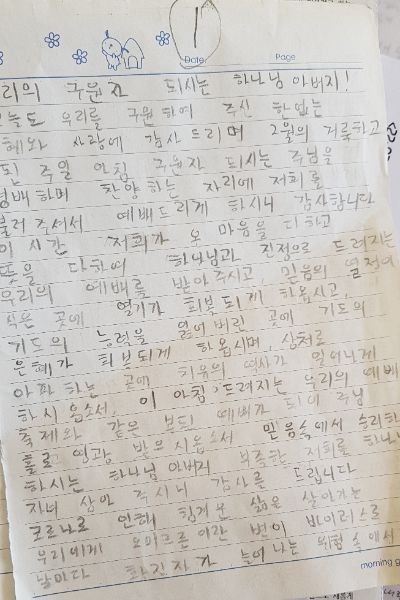 1
Date
Page
리의 구원자 되시는 하나님 아버지!
늘도 우리를 구원하여 주신 한없는
혜와 사랑에 감사드리며 2월의 거룩하고
된 주일 아침 구원자 되시는 주님을
경배하며 찬양하는 자리에 저희를
불러 주셔서 예배드리게 하시니 감사합니다
이 시간 저희가 온 마음을 다하고
뜻을 다하여 하나님과 진정으로 드려지는
우리의 예배를 받아주시고, 믿음의 열정이
식은 곳에 열기가 회복되게 하옵시고,
기도의 능력을 잃어버린 곳에 기도의
은혜가 회복되게 하옵시며, 상처로
아파하는 곳에 치유의 역사가 일어나게
하시옵소서, 이 아침 드려지는 우리의 예배
축제와 같은 복된 예배가 되어 주님
홀로 영광 받으시옵소서 믿음속에서 승리하
하시는 하나님 아버지 부족한 저희를 하나
자녀 삼아 주시니 감사를 드립니다
코로나로 인해 힘겨운 삶을 살아가는
우리에게 오미크론이란 변이 바이러스로
날마다 확진자가 늘어나는 위험속에서
morning g